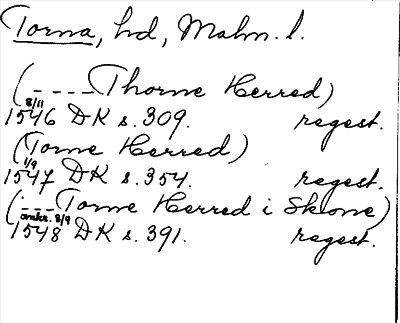 Torna, hd, Malm. l.
(---- Thorne Herred)
8/11
1546 DK s. 309. regest.
(Torne Herred)
1/9
1547 DK s. 354. regest.
(--- Torne Herred i Skone)
omkr. 8/9
1548 DK s. 391. regest.